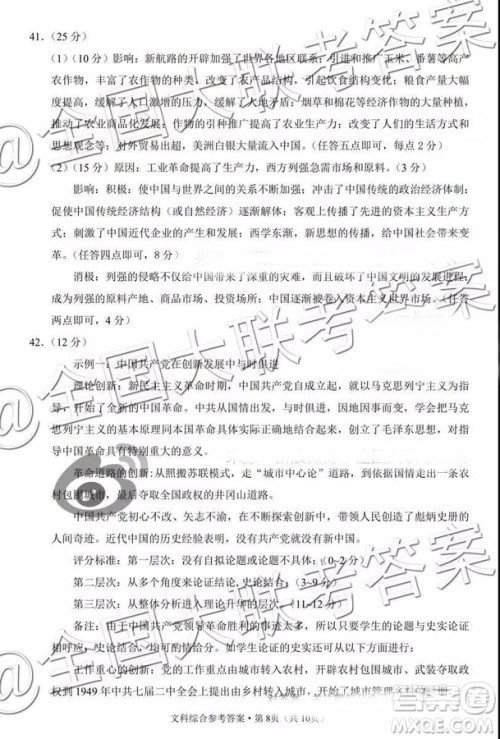 41.（25 分）
（1）（10 分）影响：新航路的开辟加强了世界各地区联系；引进和推广玉米、番薯等高产
农作物，丰富了农作物的种类，改变了农产品结构；引起饮食结构变化；粮食产量大幅
度提高，缓解了人口激增的压力，促进了山地开发；烟草和棉花等经济作物的大量种植，
推动了农业商品化发展；作物的引种推广提高了农业生产力，改变了人们的生活方式和
思想观念等；对外贸易出超，美洲白银大量流入中国。（任答五点即可，每点 2 分）
（2）（15 分）原因：工业革命提高了生产力，西方列强急需市场和原料。（3 分）
影响：积极：使中国与世界之间的关系不断加强；冲击了中国传统的政治经济体制，
促使中国传统经济结构（或自然经济）逐渐解体；客观上传播了先进的资本主义生产方
式；刺激了中国近代企业的产生和发展；西学东渐，新思想具到传播，给中国社会带来
变革。（任答四点即可，8 分）
消极：列强的侵略不仅给中国带来了深重的灾难，而且破坏了中国文明的发展；成
为列强的原料产地、商品市场、投资场所；中国逐渐被卷入资本主义世界市场。（任答
两点即可，4 分）
42.（12 分）
示例一：中国共产党在创新发展中与时俱进
理论创新：新民主主义革命时期，中国共产党人以马克思列宁主义的基本理论为指
导，开始了今天的革命事业，把马克思主义的基本原理同本国革命具体实际正确地结合，对指
导中国革命具有特别重大的意义。
革命道路的创新：从照搬苏联模式，走“城市中心论”道路，到依据国情走出一条农
村包围城市，最后夺取全国政权的井冈山道路。
中国共产党初心不改、矢志不渝，为中国人民和中华民族谱写了彪炳史册的
人间奇迹。近代中国的历史经验表明，没有共产党就没有新中国。
评分标准：第一层次：没有自拟论题或论题不具体：（0~2 分）
第二层次：从多个角度来论证结论，史论结合：（3~9 分）
第三层次：从整体分析进入理论升华的层次。（11-12 分）
备注：由于中国共产党领导革命胜利的事迹太多，所以只要学生的论题与史实论证
相符合，史论结合，均可酌情给分。如发现论题与史实不符，则要扣去一定的分数，如
以下方面：
工作重心的创新：党的工作重点由城市转入农村，开辟农村包围城市、武装夺取政
权到 1949 年中共七届二中全会上提出由乡村转入城市，开始了城市管理
文科综合参考答案·第 8页（共 10页）
@全国大联考答案